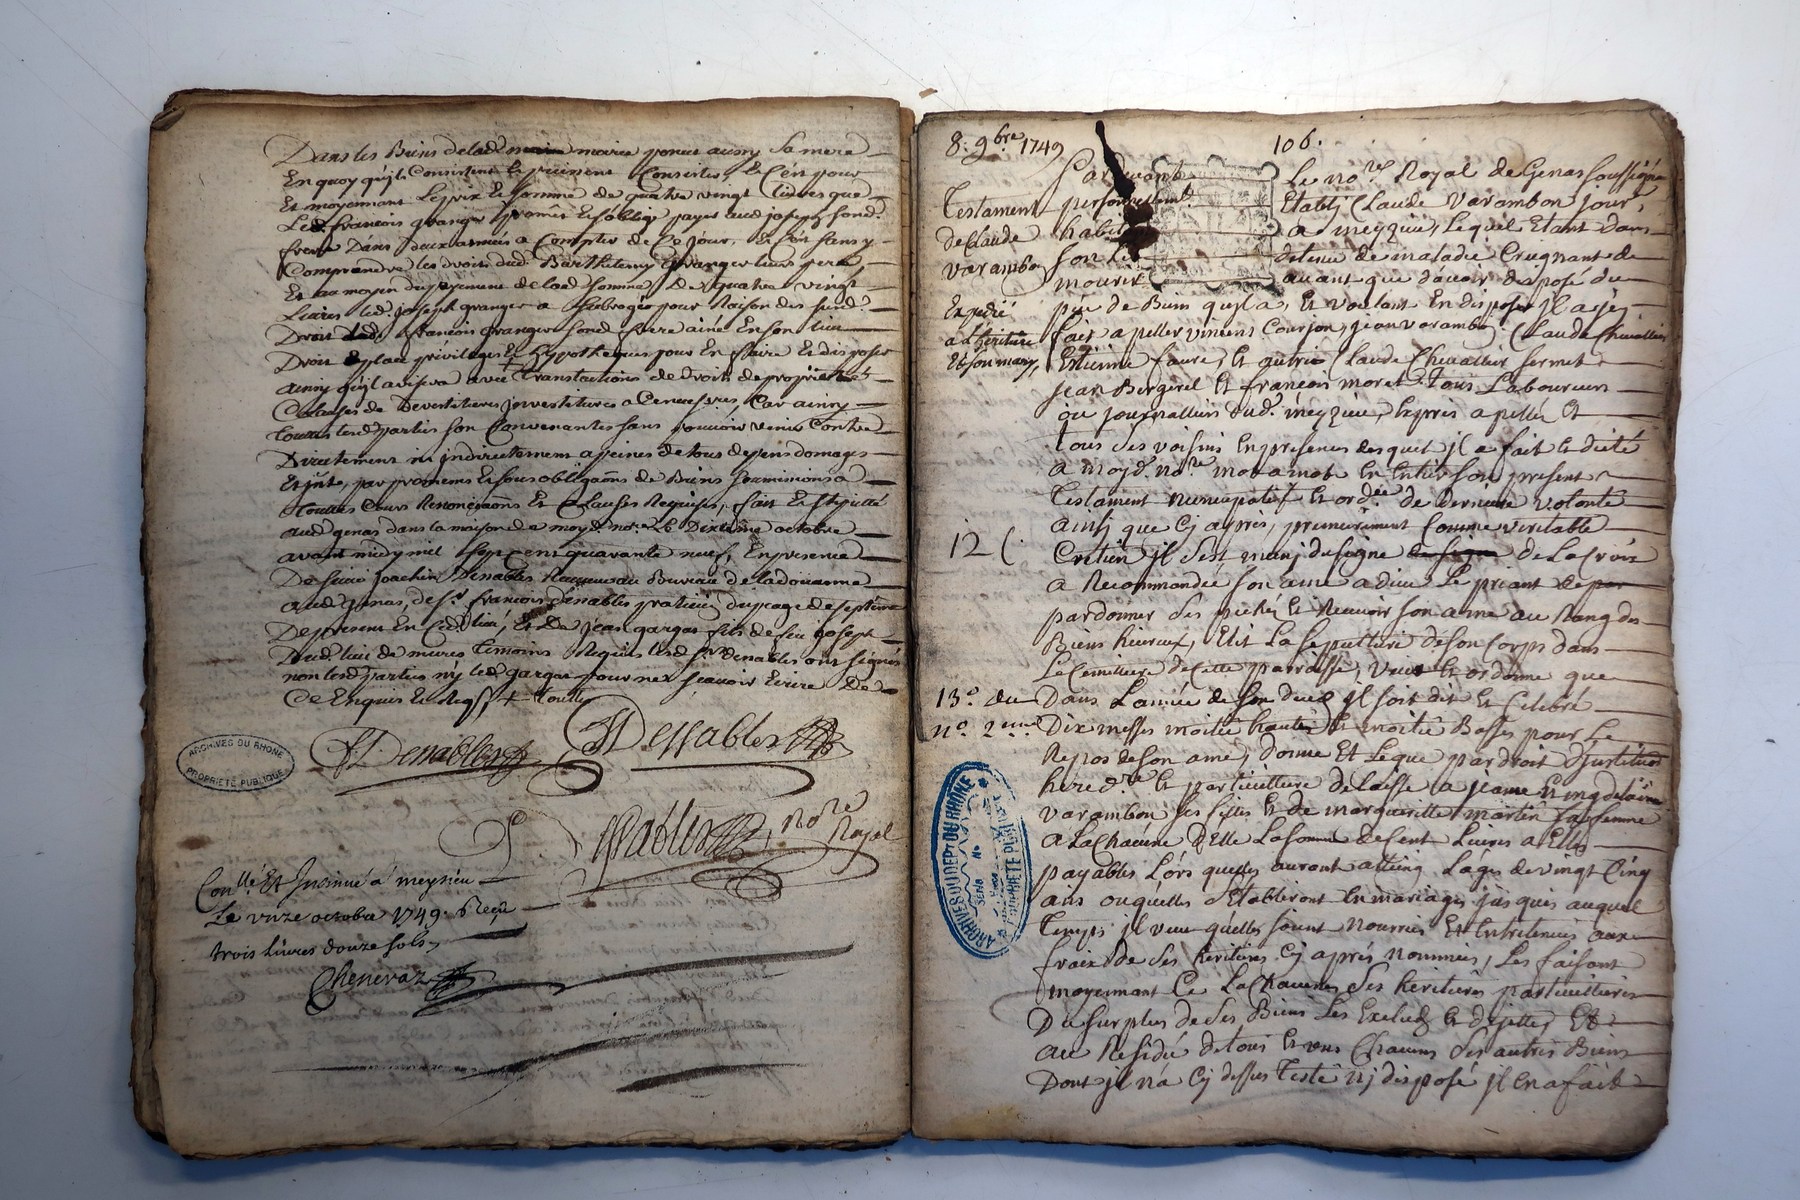 Dans les Biens de lad. marie ponce ainsy sa mere
En quoy qu'ils Consistent Et puissent Consister, Et C'est pour
Et moyennant Le prix Et somme de quatre vingt Livres que
Led. francois granger promet Et s'oblige payer aud. joseph sond.
frere Dans deux années a Compter de Ce jour, Et C'est sans y
Comprendre les droits dud. Barthelemy granger leur pere,
Et au moyen du payement de lad. somme De quatre vingt
Livres led. joseph granger a Subrogé pour Raison des susd.
Droit led. francois granger sond. frere ainé En son lieu
Droit Et place privileges Et hypotheques pour En faire Et disposer
ainsy qu'il avisera avec translactions de droits de proprieté
Clauses de Devestitures jnvestitures a Ce necess.res, Car ainsy
toutes lesd. parties son Convenantes sans pouvoir venir Contre
Directement ni jndirectement a peines de tous depens domages
Et jnts, par promesses Et sous obligaons de Biens soumissions a
toutes Cours Renonciaons Et Clauses Requises, fait Et stipullé
aud. genas dans la maison de moyd. no.re le Dixieme octobre
avant midy mil sept cent quarante neuf, En presence
De sieur joachin Desnables Receveur au Bureau de la douanne
aud. genas, de s.r francois desnables praticien du peage de septeme
De present En Ced. lieu, Et De jean gargat fils de feu joseph
Dud. lieu de mures temoins Requis lesd. s.rs desnables ont signés
non lesd. parties n'y led. gargat pour ne scavoir Ecrire De
Ce Enquis Et Reqs + toutte
Desnables Desnables
no.re Royal
ARCHIVES DU RHONE
PROPRIÉTÉ PUBLIQUE
Con.llé Et Insinué a meysieu
Le onze octobre 1749. Reçu
trois livres douze sols
Cheneraz
8. 9.bre 1749
106.
Pardevant Le no.re Royal de Genas soussigné
Testament personnellement Etably Claude Varambon jour.
de Claude habit a meyzieu, Lequel Etant dans
varambon son lit detenu de maladie Creignant de
mourir avant que d'avoir disposé du
Expedié
a l'heritiere
Et son mary
peu de Bien qu'il a, Et voulant En disposer jl a je
fait apeller vincent Courjon, jean varambon, Claude Chevallier
Estienne faure, Et autre Claude Chevallier fermet
jean Bergeret Et francois moret tous Laboureurs
ou journalliers dud. meyzieu, Expres apellés Et
tous ses voisins En presences desquels jl a fait Et dicté
a moyd. no.re mot a mot En Entier son present
Testament nuncupatif Et ord.ée de derniere volonté
ainsy que Cy après, premierement Comme veritable
12 (.
Cretien jl s'est muny du signe de La Croix
a Recommandé son ame a dieu Le priant de
pardonner ses pechés Et Recevoir son ame au Rang des
Biens heureux, Elit La sepulture de son Corps dans
Le Cemitiere de Cette parroisse, Veut Et ordonne que
13.e du
n.o 2.eme
Dans L'année de son deced jl soit dit Et Celebré
Dix messes moitié hautes Et moitié Basses pour Le
Repos de son ame, donne Et Legue par droit d'jnstitution
hered.re Et particulliere delaisse a jeanne Et
varambon ses filles Et de margueritte martin sa femme
a La Chacune D'Elle La somme de Cent Livres a Elles
payables Lors quelles auront atteint L'age de vingt Cinq
ans ou quelles s'Etabliront En mariages jusques auquel
Temps jl veut quelles soient Nourries Et Entretenues aux
fraix de ses heritieres Cy après nommées, Les faisant
moyennant Ce La Chacunes ses heritieres particullieres
Du surplus de ses Biens Les Exclud Et dejette, Et
au Residû de tous Et uns Chacuns ses autres Biens
Dont jl n'a Cy dessus testé ny disposé jl En a fait
ARCHIVES DU DEPT DU RHONE
SERIE
No
PROPRIÉTÉ PUBLIQUE